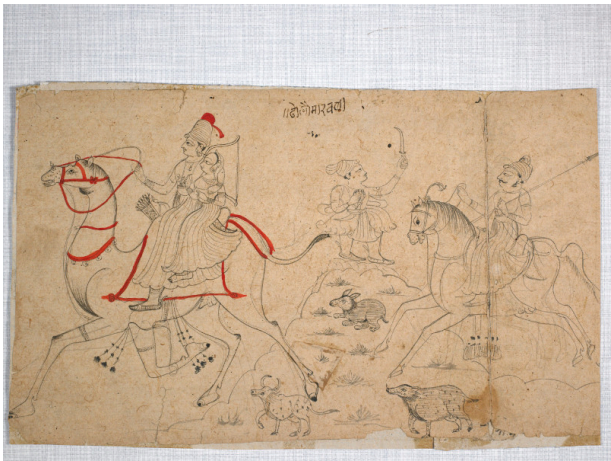 ॥ढोलौमारवणी